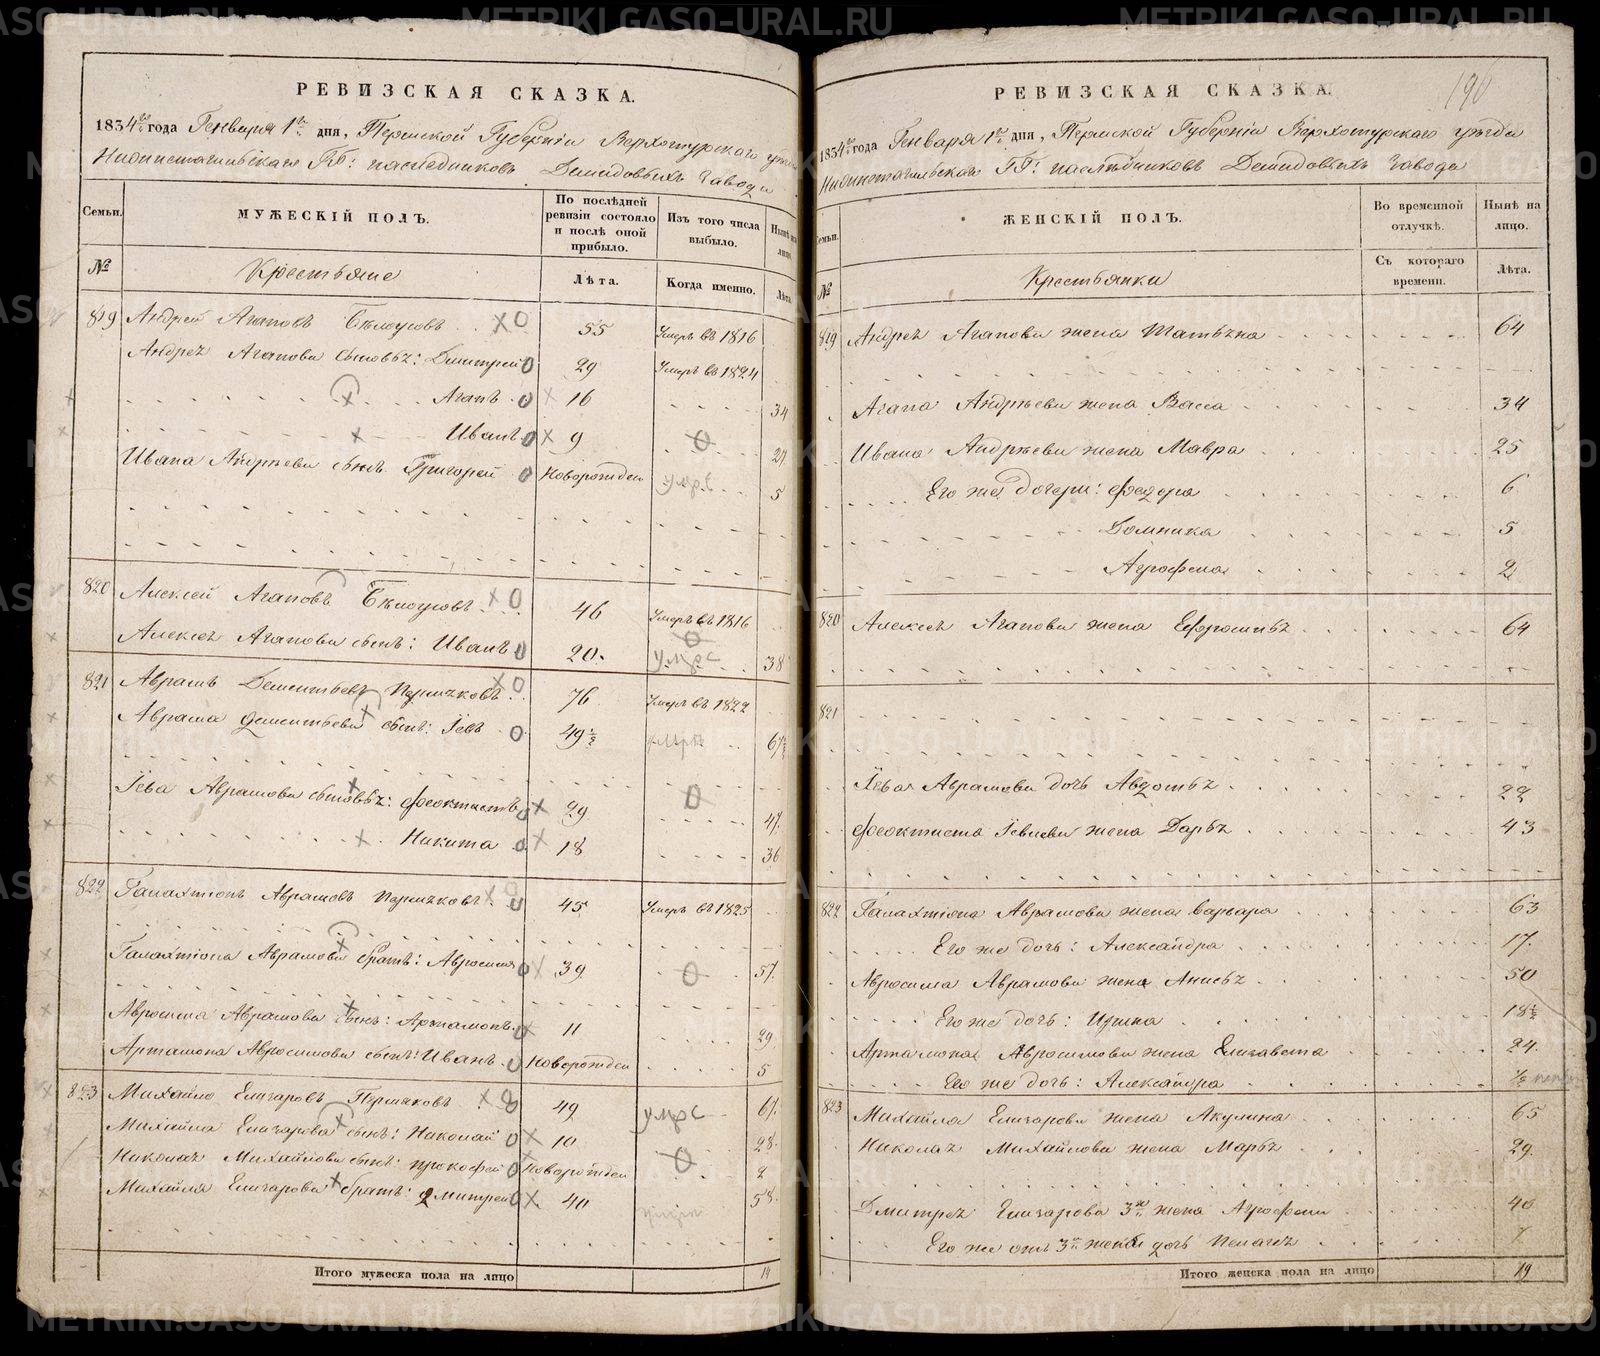 РЕВИЗСКАЯ СКАЗКА.
1834го года Генваря 1го дня, Пермской Губернiи Верхотурскаго уезда
Нижнетагильскаго ГГ: наследниковъ Демидовыхъ Завода
Семьи.
МУЖЕСКІЙ ПОЛЪ.
По послѣдней ревизіи состояло и послѣ оной прибыло.
Изъ того числа выбыло.
Нынѣ на лицо.
№
Крестьяне
Лѣта.
Когда именно.
Лѣта
819 Андрей Агаповъ Бѣлоусовъ 55 Умеръ въ 1816
Андрея Агапова сыновья: Дмитрей 29 Умеръ въ 1824
Агапъ 16 34
Иванъ 9 27
Ивана Андреева сынъ Григорей новорожден умре 5
820 Алексей Агаповъ Бѣлоусовъ 46 Умеръ въ 1816
Алексея Агапова сынъ: Иванъ 20 умре 38
821 Аврамъ Дементьевъ 76 Умеръ въ 1822
Аврама Дементьева сынъ: Іевъ 49½ 67½
Іева Аврамова сыновья: Феоктистъ 29 47
Никита 18 36
822 Галахтіонъ Аврамовъ 45 Умеръ въ 1825
Галахтіона Аврамова братъ: Авросимъ 39 57
Авросима Аврамова сынъ: Артамонъ 11 29
Артамона Авросимова сынъ: Иванъ новорожден 5
823 Михайло Елизаровъ Пермяковъ 49 умре 67
Михайла Елизарова сынъ: Николай 10 28
Николая Михайлова сынъ: Прокофей новорожден 2
Михайла Елизарова братъ: Дмитрей 40 58
Итого мужеска пола на лицо 14
РЕВИЗСКАЯ СКАЗКА.
196
1834го года Генваря 1го дня, Пермской Губерніи Верхотурскаго уезда
Нижнетагильскаго ГГ: наслѣдниковъ Демидовыхъ Завода
Семьи.
ЖЕНСКІЙ ПОЛЪ.
Во временной отлучкѣ.
Нынѣ на лицо.
№
Крестьянки
Съ котораго времени.
Лѣта.
819 Андрея Агапова жена Татьяна 64
Агапа Андреева жена Васса 34
Ивана Андреева жена Мавра 25
Его же дочери: Федора 6
Домника 5
Агрофена 2
820 Алексея Агапова жена Ефросинья 64
821
Іева Аврамова дочь Авдотья 22
Феоктиста Іевлева жена Дарья 43
822 Галахтіона Аврамова жена Варвара 63
Его же дочь: Александра 17
Авросима Аврамова жена Анисья 50
Его же дочь: Ирина 18½
Артамона Авросимова жена Елизавета 24
Его же дочь: Александра ½
823 Михайла Елизарова жена Акулина 65
Николая Михайлова жена Марья 29
Дмитрея Елизарова 3я жена Агрофена 40
Его же отъ 3й жены дочь Пелагея 7
Итого женска пола на лицо 19
METRIKI.GASO-URAL.RU